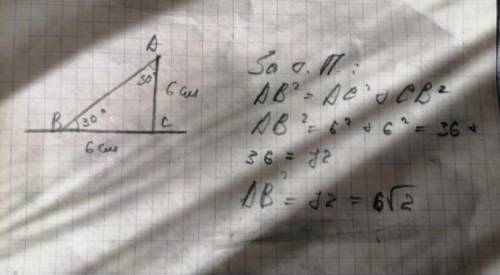 A
30°
6 см
B
30°
C
6 см
За т. П.:
AB² = AC² + CB²
AB² = 6² + 6² = 36 +
36 = 72
AB² = 72 = 6√2